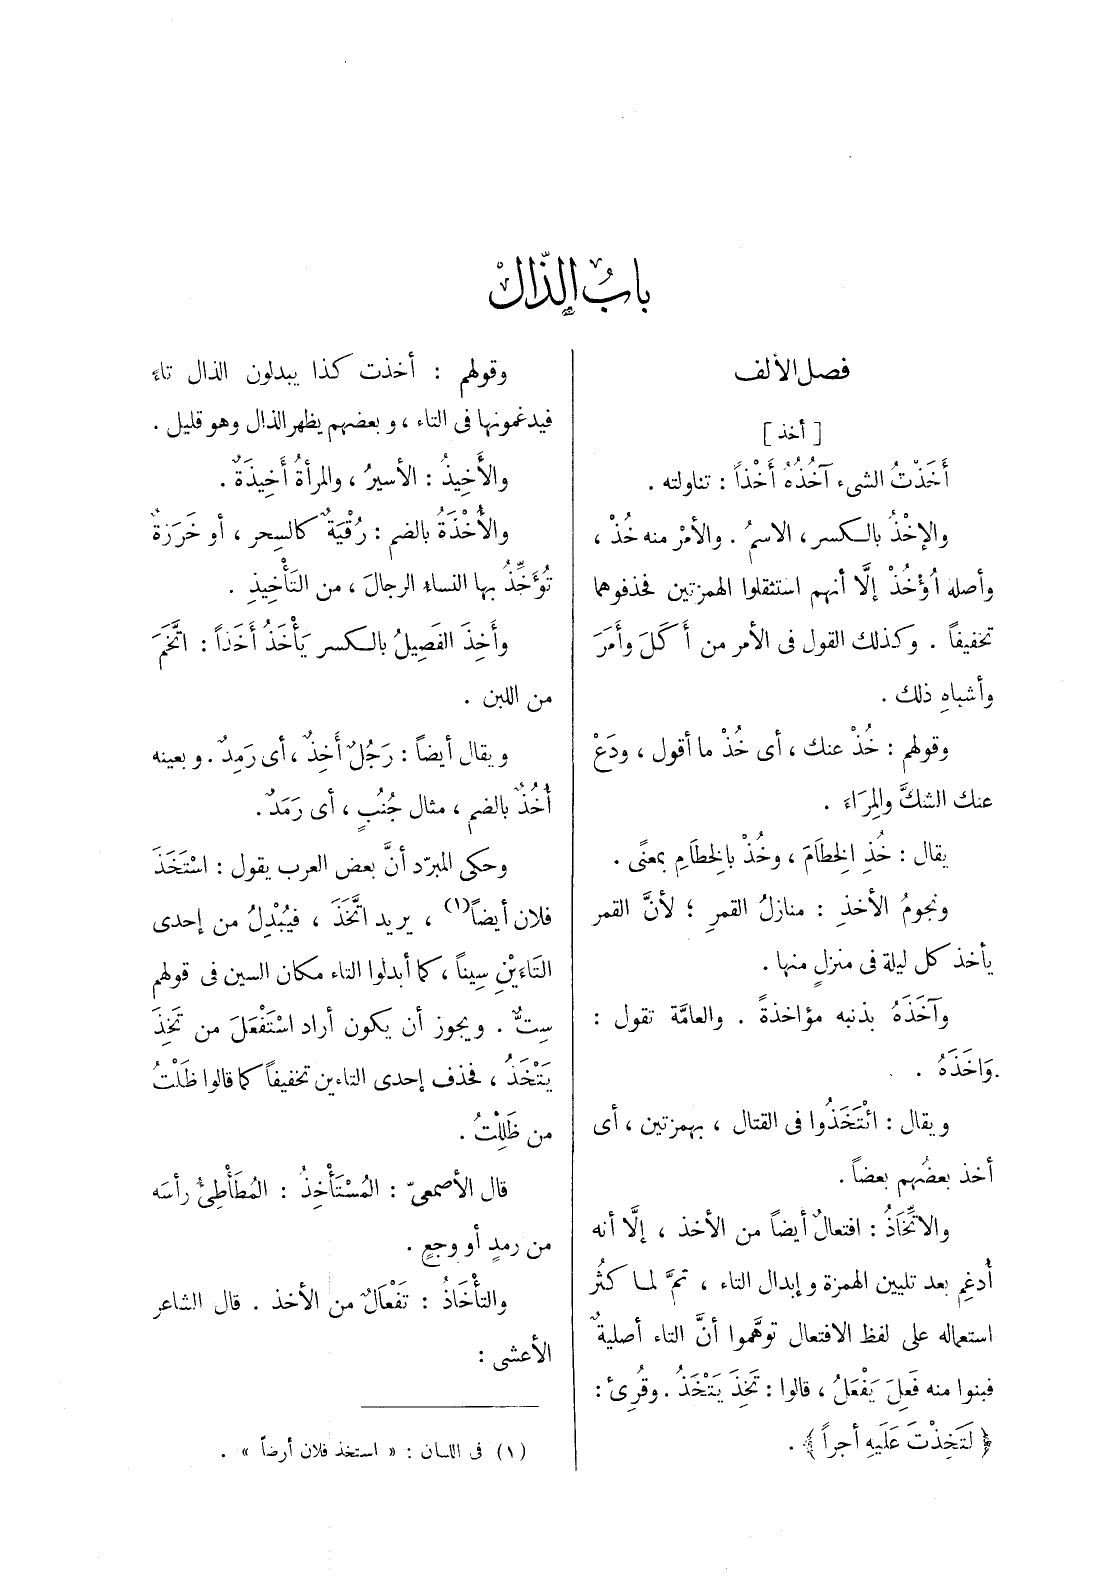 بابُ الذّالْ
فصل الألف
[ أخذ ]
أَخَذْتُ الشىء آخُذُهُ أَخْذاً : تناولته .
والإخْذُ بالكسر، الاسمُ . والأمْر منه خُذْ ،
وأصله اُؤْخُذْ إلَّا أنهم استثقلوا الهمزتين فحذفوهما
تخفيفاً . وكذلك القول فى الأمر من أَكَلَ وأَمَرَ
وأشباهِ ذلك .
وقولهم : خُذْ عنك ، أى خُذْ ما أقول ، ودَعْ
عنك الشكَّ والمِرَاءَ .
يقال : خُذِ الخِطَامَ ، وخُذْ بالخِطَامِ بمعنًى .
ونجومُ الأخذِ : منازلُ القمرِ ؛ لأنَّ القمر
يأخذ كل ليلة فى منزلٍ منها .
وآخَذَهُ بذنبه مؤاخذةً . والعامَّة تقول :
وَاخَذَهُ .
ويقال : ائْتَخَذُوا فى القتال ، بهمزتين ، أى
أخذ بعضُهم بعضاً .
والاتِّخَاذُ : افتعالٌ أيضاً من الأخذ ، إلَّا أنه
أُدغِم بعد تليين الهمزة وإبدال التاء ، ثمَّ لما كثُر
استعماله على لفظ الافتعال توهَّموا أنَّ التاء أصليةٌ
فبنوا منه فَعِلَ يَفْعَلُ ، قالوا : تَخِذَ يَتْخَذُ . وقُرِئ :
﴿ لَتَخِذْتَ عَلَيهِ أجراً ﴾ .
وقولهم : أخذت كذا يبدلون الذال تاءً
فيدغمونها فى التاء ، وبعضهم يظهر الذال وهو قليل .
والأَخِيذُ : الأسيرُ ، والمرأةُ أَخِيذَةٌ .
والأُخْذَةُ بالضم : رُقْيَةٌ كالسِحر ، أو خَرَزةٌ
تُؤَخِّذُ بها النساءُ الرجالَ ، من التَأْخِيذِ .
وأَخِذَ الفَصِيلُ بالكسر يَأْخَذُ أَخَذاً : اتَّخَمَ
من اللبن .
ويقال أيضاً : رَجُلٌ أَخِذٌ ، أى رَمِدٌ . وبعينه
أُخُذٌ بالضم ، مثال جُنُبٍ ، أى رَمَدٌ .
وحكى المبرّد أنَّ بعض العرب يقول : اسْتَخَذَ
فلان أيضاً(١) ، يريد اتَّخَذَ ، فيُبْدِلُ من إحدى
التَاءَيْنِ سِيناً ، كما أبدلوا التاء مكان السين فى قولهم
سِتٌّ . ويجوز أن يكون أراد اسْتَفْعَلَ من تَخِذَ
يَتْخَذُ ، فحذف إحدى التاءين تخفيفاً كما قالوا ظَلْتُ
من ظَلِلْتُ .
قال الأصمعىّ : المُسْتَأْخِذُ : المُطَأْطِئُ رأسَه
من رمدٍ أو وجعٍ .
والتأْخَاذُ : تَفْعَالٌ من الأخذ . قال الشاعر
الأعشى :
(١) فى اللسان : « استخذ فلان أرضاً » .